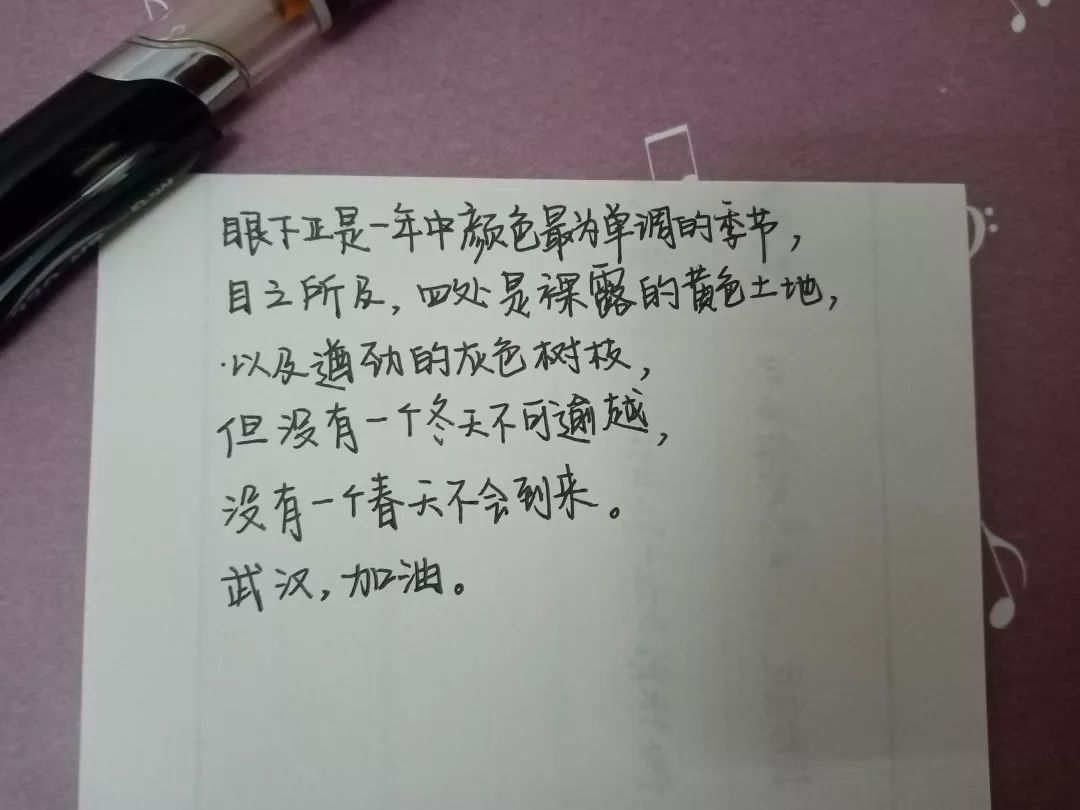 眼下正是一年中颜色最为单调的季节，
目之所及，四处是裸露的黄色土地，
以及遒劲的灰色树枝，
但没有一个冬天不可逾越，
没有一个春天不会到来。
武汉，加油。